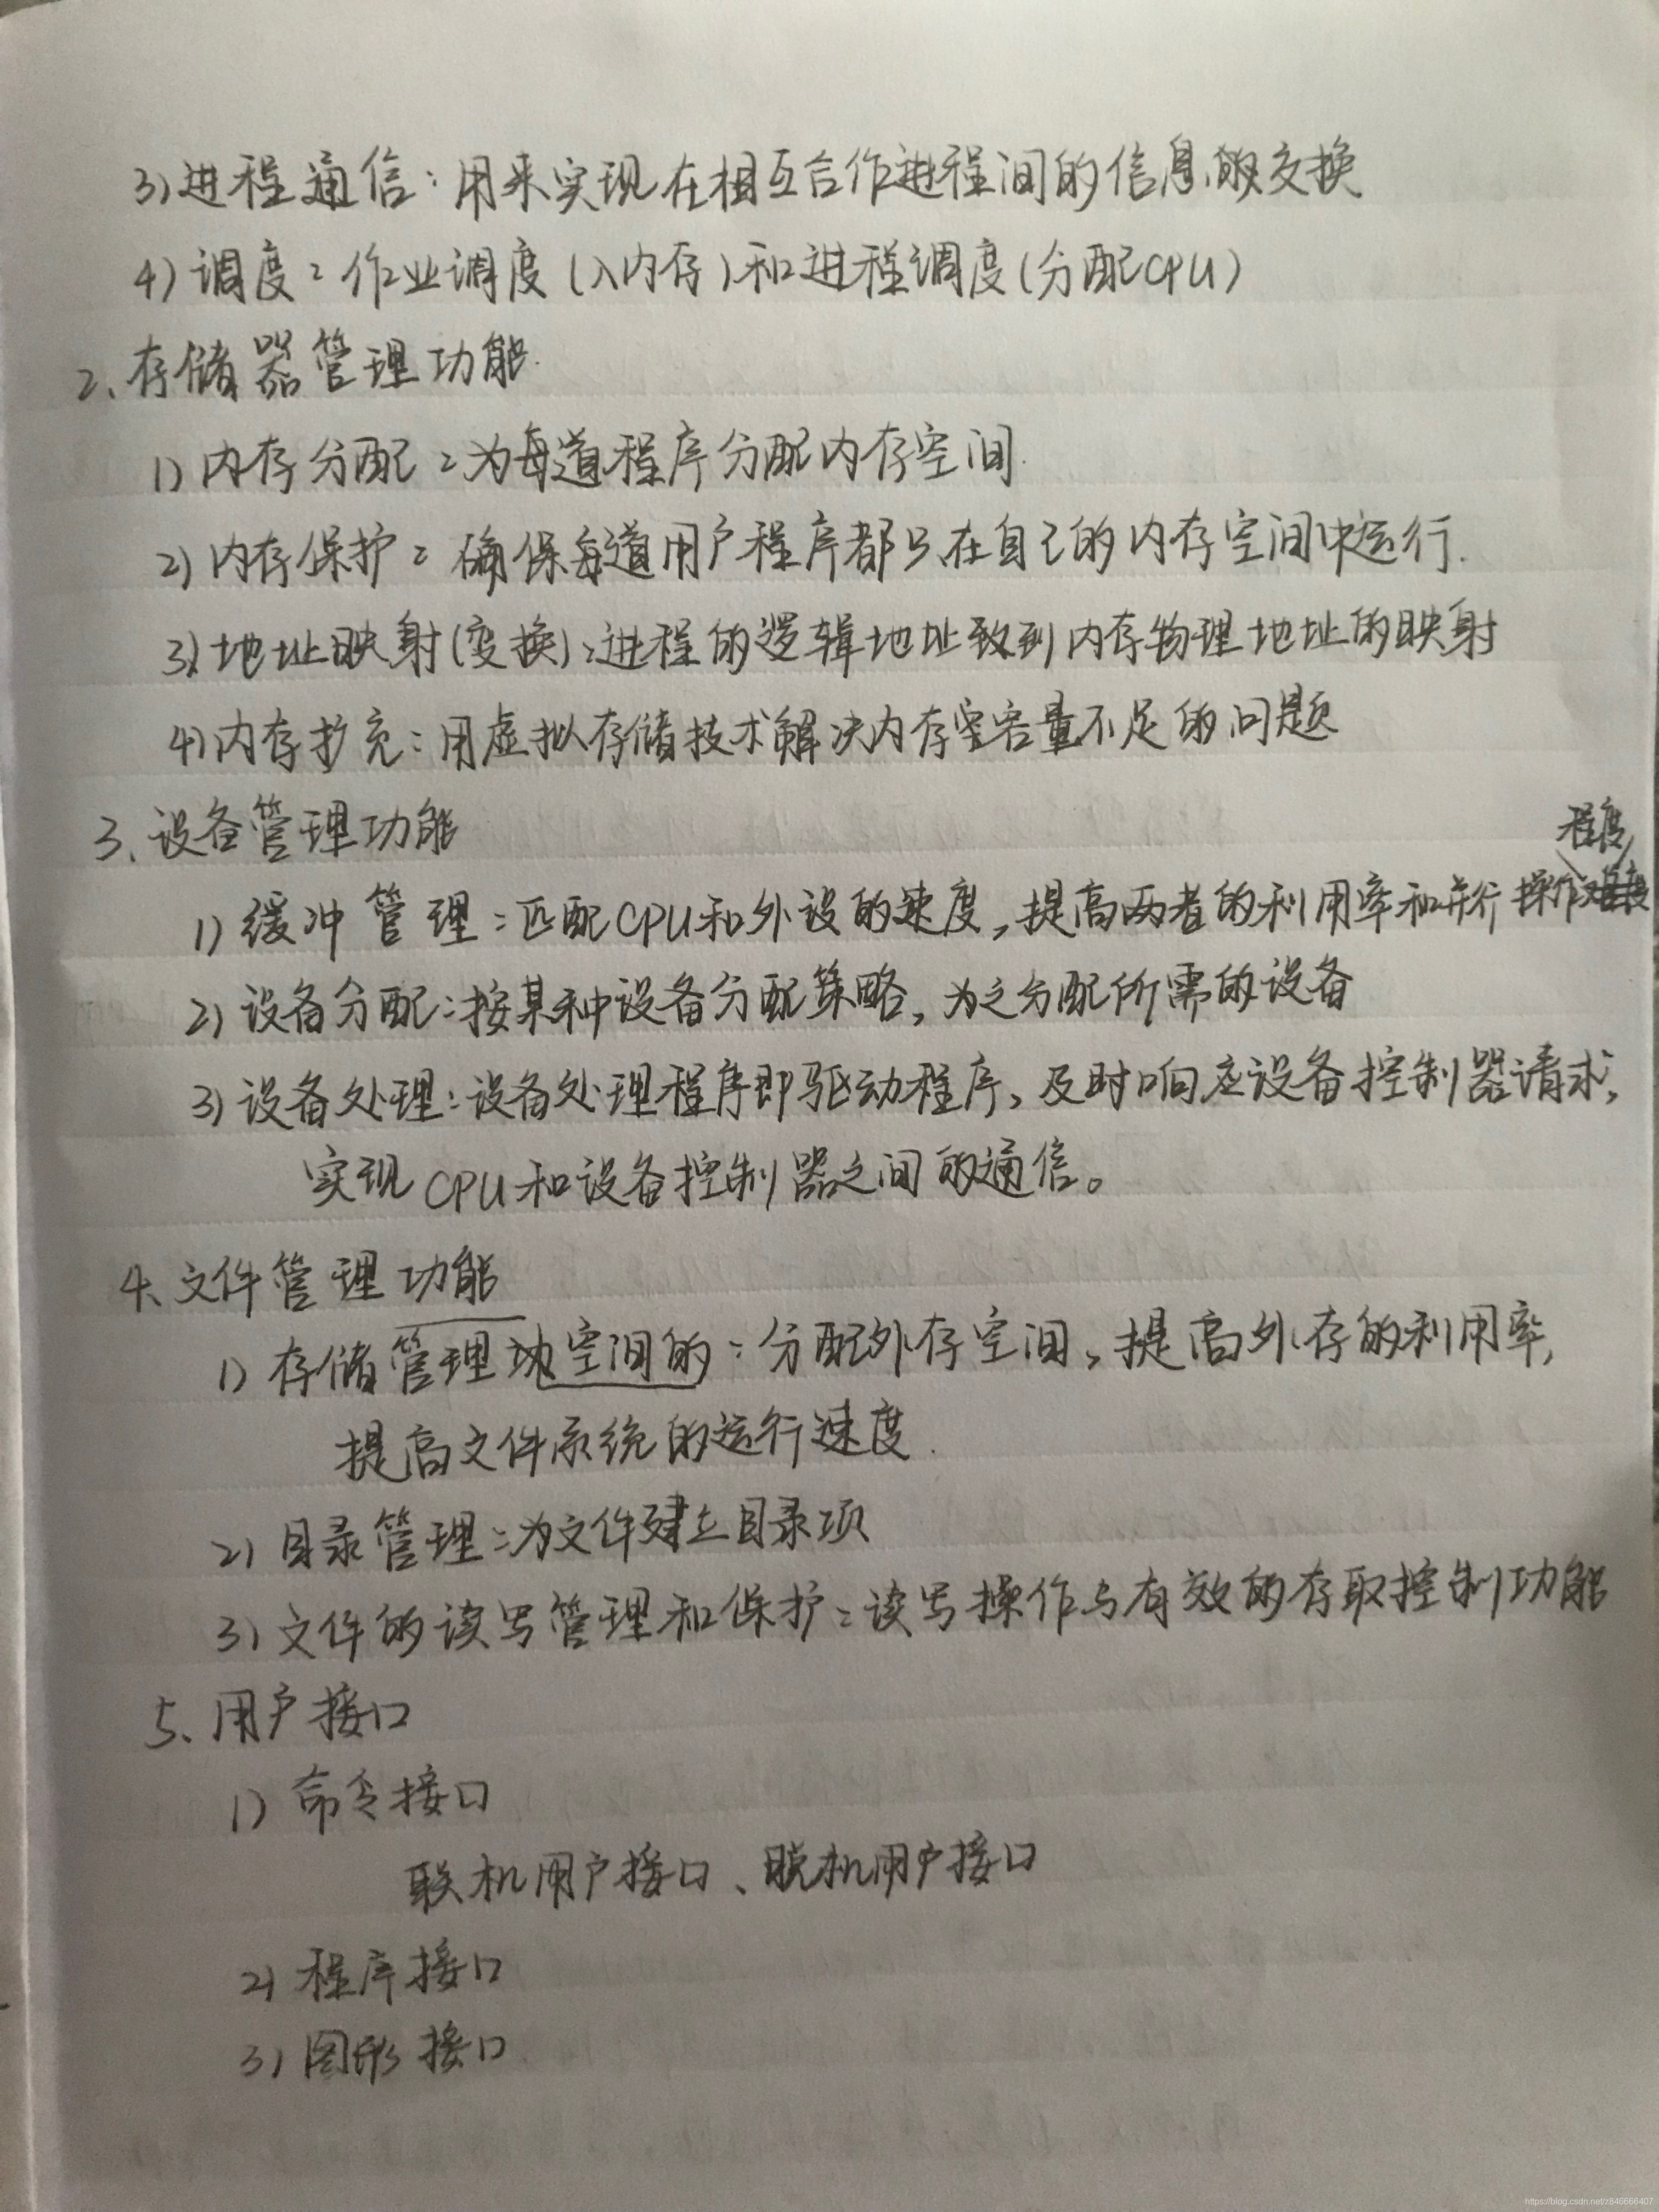 3) 进程通信：用来实现在相互合作进程间的信息的交换
4) 调度：作业调度(入内存)和进程调度(分配CPU)
2、存储器管理功能.
1) 内存分配：为每道程序分配内存空间.
2) 内存保护：确保每道用户程序都只在自己的内存空间中运行.
3) 地址映射(变换)：进程的逻辑地址致到内存物理地址的映射
4) 内存扩充：用虚拟存储技术解决内存容量不足的问题
3、设备管理功能
程度
1) 缓冲管理：匹配CPU和外设的速度，提高两者的利用率和并行操作
2) 设备分配：按某种设备分配策略，为之分配所需的设备
3) 设备处理：设备处理程序即驱动程序，及时响应设备控制器请求，
实现CPU和设备控制器之间的通信。
4、文件管理功能
1) 存储管理空间的：分配外存空间，提高外存的利用率，
提高文件系统的运行速度.
2) 目录管理：为文件建立目录项
3) 文件的读写管理和保护：读写操作与有效的存取控制功能
5、用户接口
1) 命令接口
联机用户接口、脱机用户接口
2) 程序接口
3) 图形接口
https://blog.csdn.net/z846666407